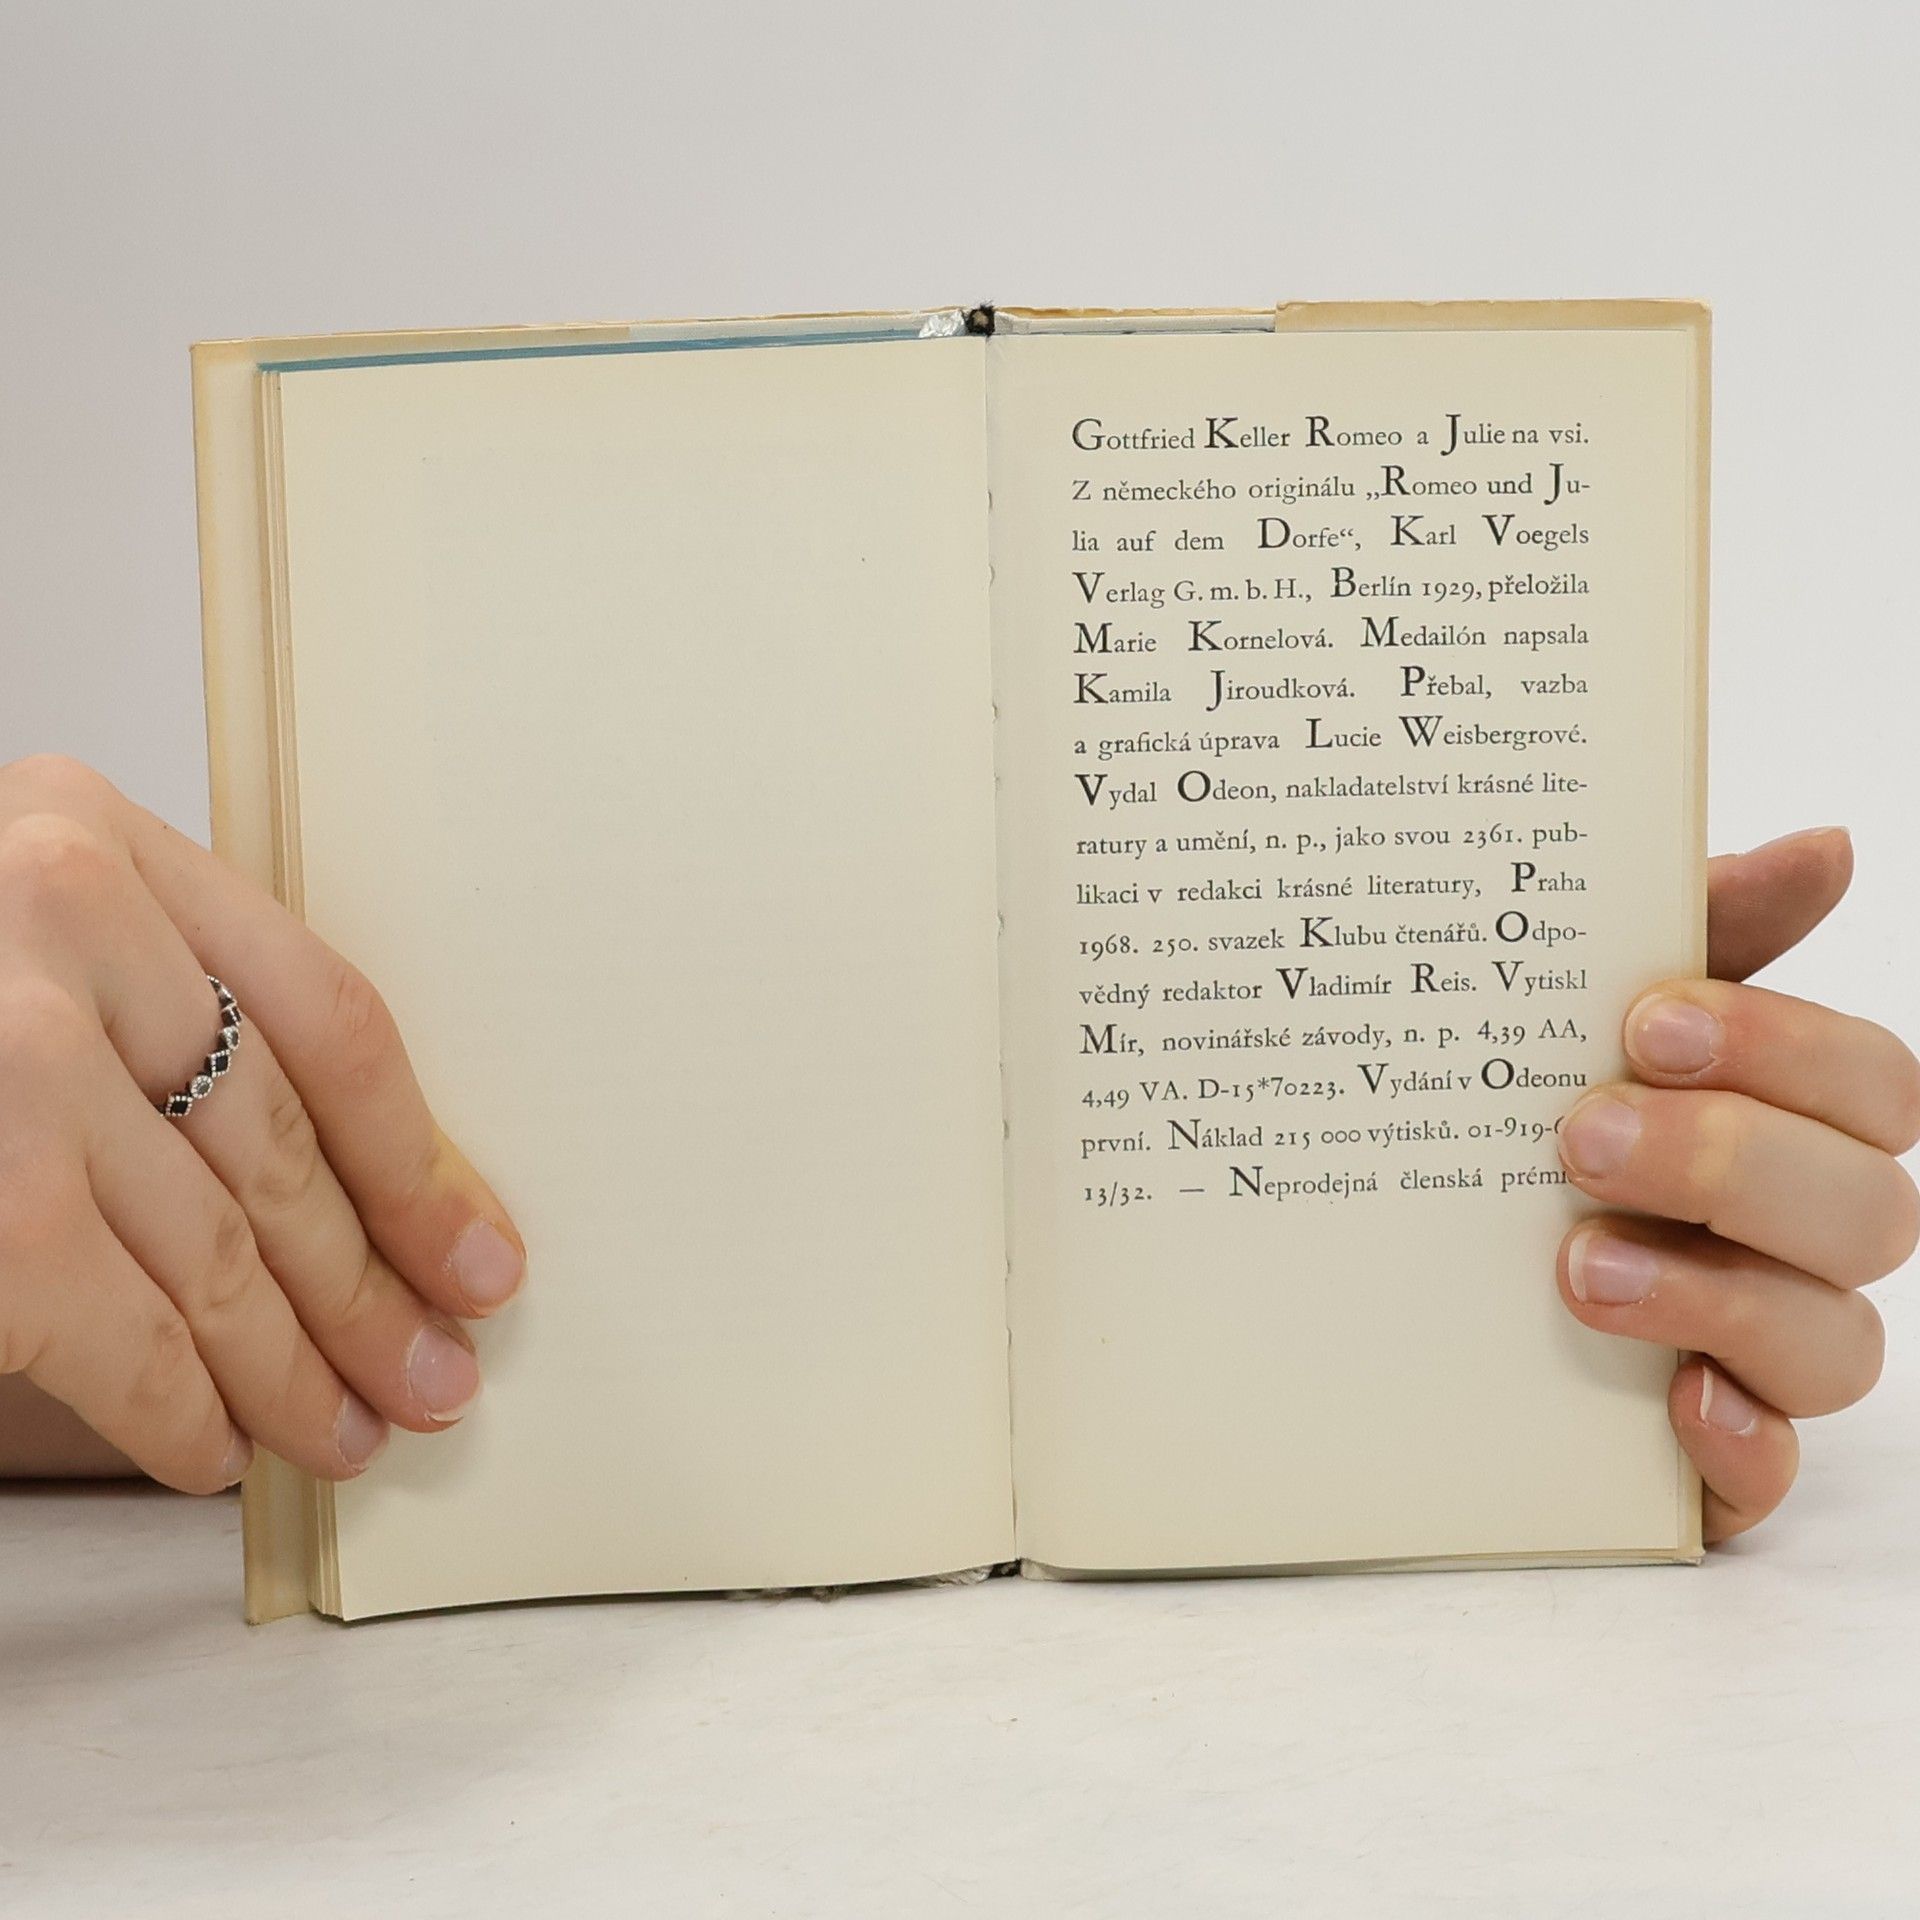 Gottfried Keller Romeo a Julie na vsi.
Z německého originálu „Romeo und Ju-
lia auf dem Dorfe“, Karl Voegels
Verlag G. m. b. H., Berlín 1929, přeložila
Marie Kornelová. Medailón napsala
Kamila Jiroudková. Přebal, vazba
a grafická úprava Lucie Weisbergrové.
Vydal Odeon, nakladatelství krásné lite-
ratury a umění, n. p., jako svou 2361. pub-
likaci v redakci krásné literatury, Praha
1968. 250. svazek Klubu čtenářů. Odpo-
vědný redaktor Vladimír Reis. Vytiskl
Mír, novinářské závody, n. p. 4,39 AA,
4,49 VA. D-15*70223. Vydání v Odeonu
první. Náklad 215 000 výtisků. 01-919-
13/32. — Neprodejná členská